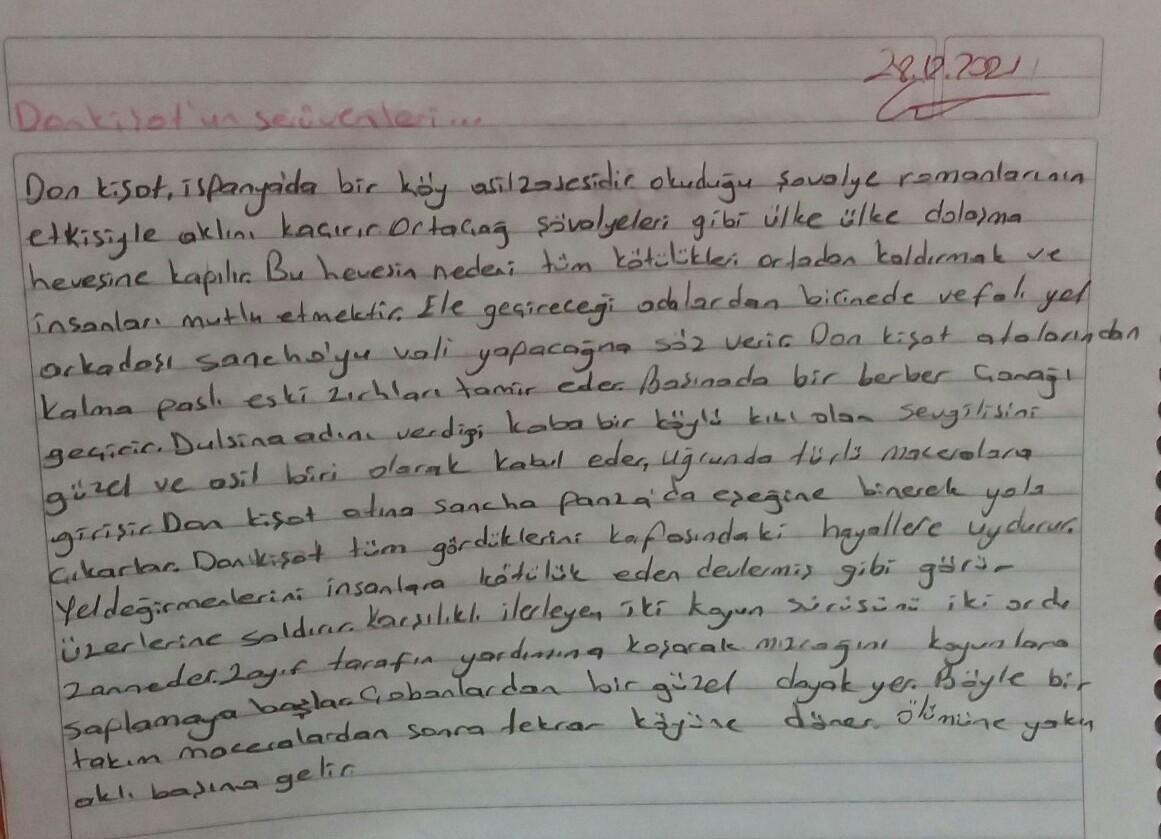 28.12.2021
Donkişot'un serüvenleri...
Don kişot, ispanya'da bir köy asilzadesidir okuduğu şovalye romanlarının
etkisiyle aklını kaçırır Ortaçağ şövalyeleri gibi ülke ülke dolaşma
hevesine kapılır. Bu hevesin nedeni tüm kötülükleri ortadan kaldırmak ve
insanları mutlu etmektir. Ele geçireceği adalardan birinede vefalı yol
arkadaşı sancho'yu vali yapacağına söz verir Don kişot atalarından
kalma paslı eski zırhları tamir eder. Başınada bir berber Çanağı
geçirir. Dulsina adını verdiği kaba bir köylü kızı olan sevgilisini
güzel ve asil biri olarak kabul eder, uğrunda türlü maceralara
girişir Don kişot atına sancha panza'da eşeğine binerek yola
Çıkarlar. Donkişot tüm gördüklerini kafasındaki hayallere uydurur.
Yeldeğirmenlerini insanlara kötülük eden devlermiş gibi görür
üzerlerine saldırır. Karşılıklı ilerleyen iki koyun sürüsünü iki ordu
zanneder. Zayıf tarafın yardımına koşarak mızrağını koyunlara
saplamaya başlar Çobanlardan bir güzel dayak yer. Böyle bir
takım maceralardan sonra tekrar köyüne döner. Ölümüne yakın
aklı başına gelir